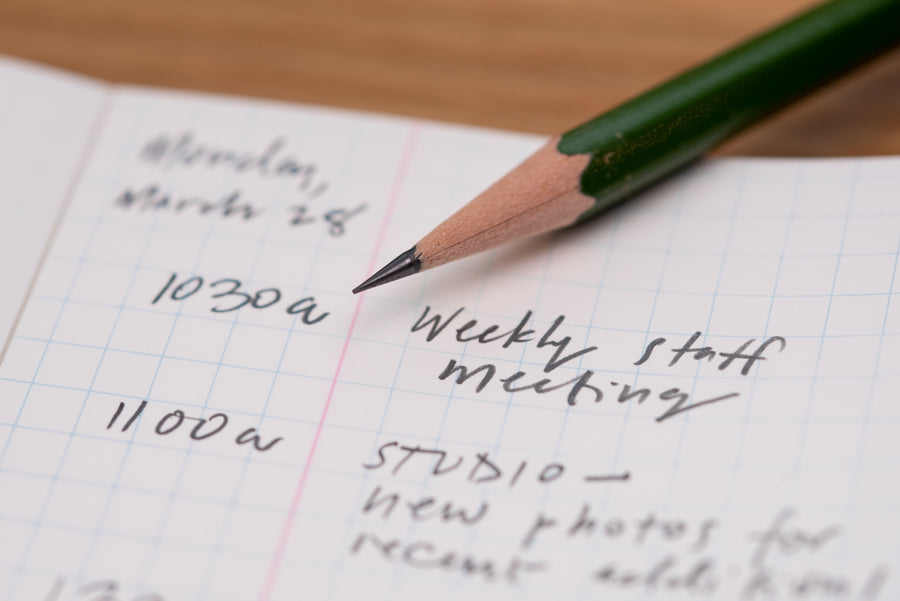 Monday,
March 28
1030a
Weekly staff
meeting
1100a
STUDIO –
new photos for
recent additional